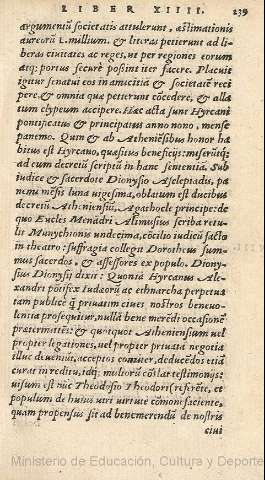 LIBER XIIII. 239
argumentũ societatis attulerunt, æstimationis
aureorũ L. millium. & literas petierunt ad li-
beras ciuitates ac reges, ut per regiones eorum
atq; portus securè poßint iter facere. Placuit
igitur senatui eos in amicitiã & societatẽ reci
pere, & omnia quæ petierunt cõcedere, & alla
tum clypeum accipere. Hæc acta sunt Hyrcani
pontificatus & principatus anno nono, mense
panemo. Quin & ab Atheniẽsibus honor ha
bitus est Hyrcano, quasitus beneficijs: miserũtq;
ad eum decretũ scriptũ in hanc sententiã. Sub
iudice & sacerdote Dionysio Asclepiadis, pa
nemi mẽsis luna uigesima, oblatum est ducibus
decretũ Atheniẽsiũ, Agathocle principe: de
quo Eucles Menãdri Alimusius scriba retu-
lit Munychionis undecima, cõcilio iudicũ facto
in theatro: suffragia collegit Dorotheus sum-
mus sacerdos, & assessores ex popub. Diony-
sius Dionysij dixit: Quoniã Hyrcanus Ale-
xandri põtifex Iudæorũ ac ethnarcha perpetua
tam publicè q̃ priuatim ciues nostros beneuo-
lentia prosequitur, nullã bene merẽdi occasionẽ
prætermittẽs: & quotquot Atheniensium uel
propter legationes, uel propter priuata negotia
illuc deueniũt, acceptos comiter, deducẽdos etiã
curat in reditu, idq; multorũ cõstat testimonijs:
uisum est nũc Theodosio Theodori referẽte, et
populum de huius uiri uirtute cõmonefaciente,
quàm propensus sit ad benemerendũ de nostris
ciui
Ministerio de Educación, Cultura y Deporte